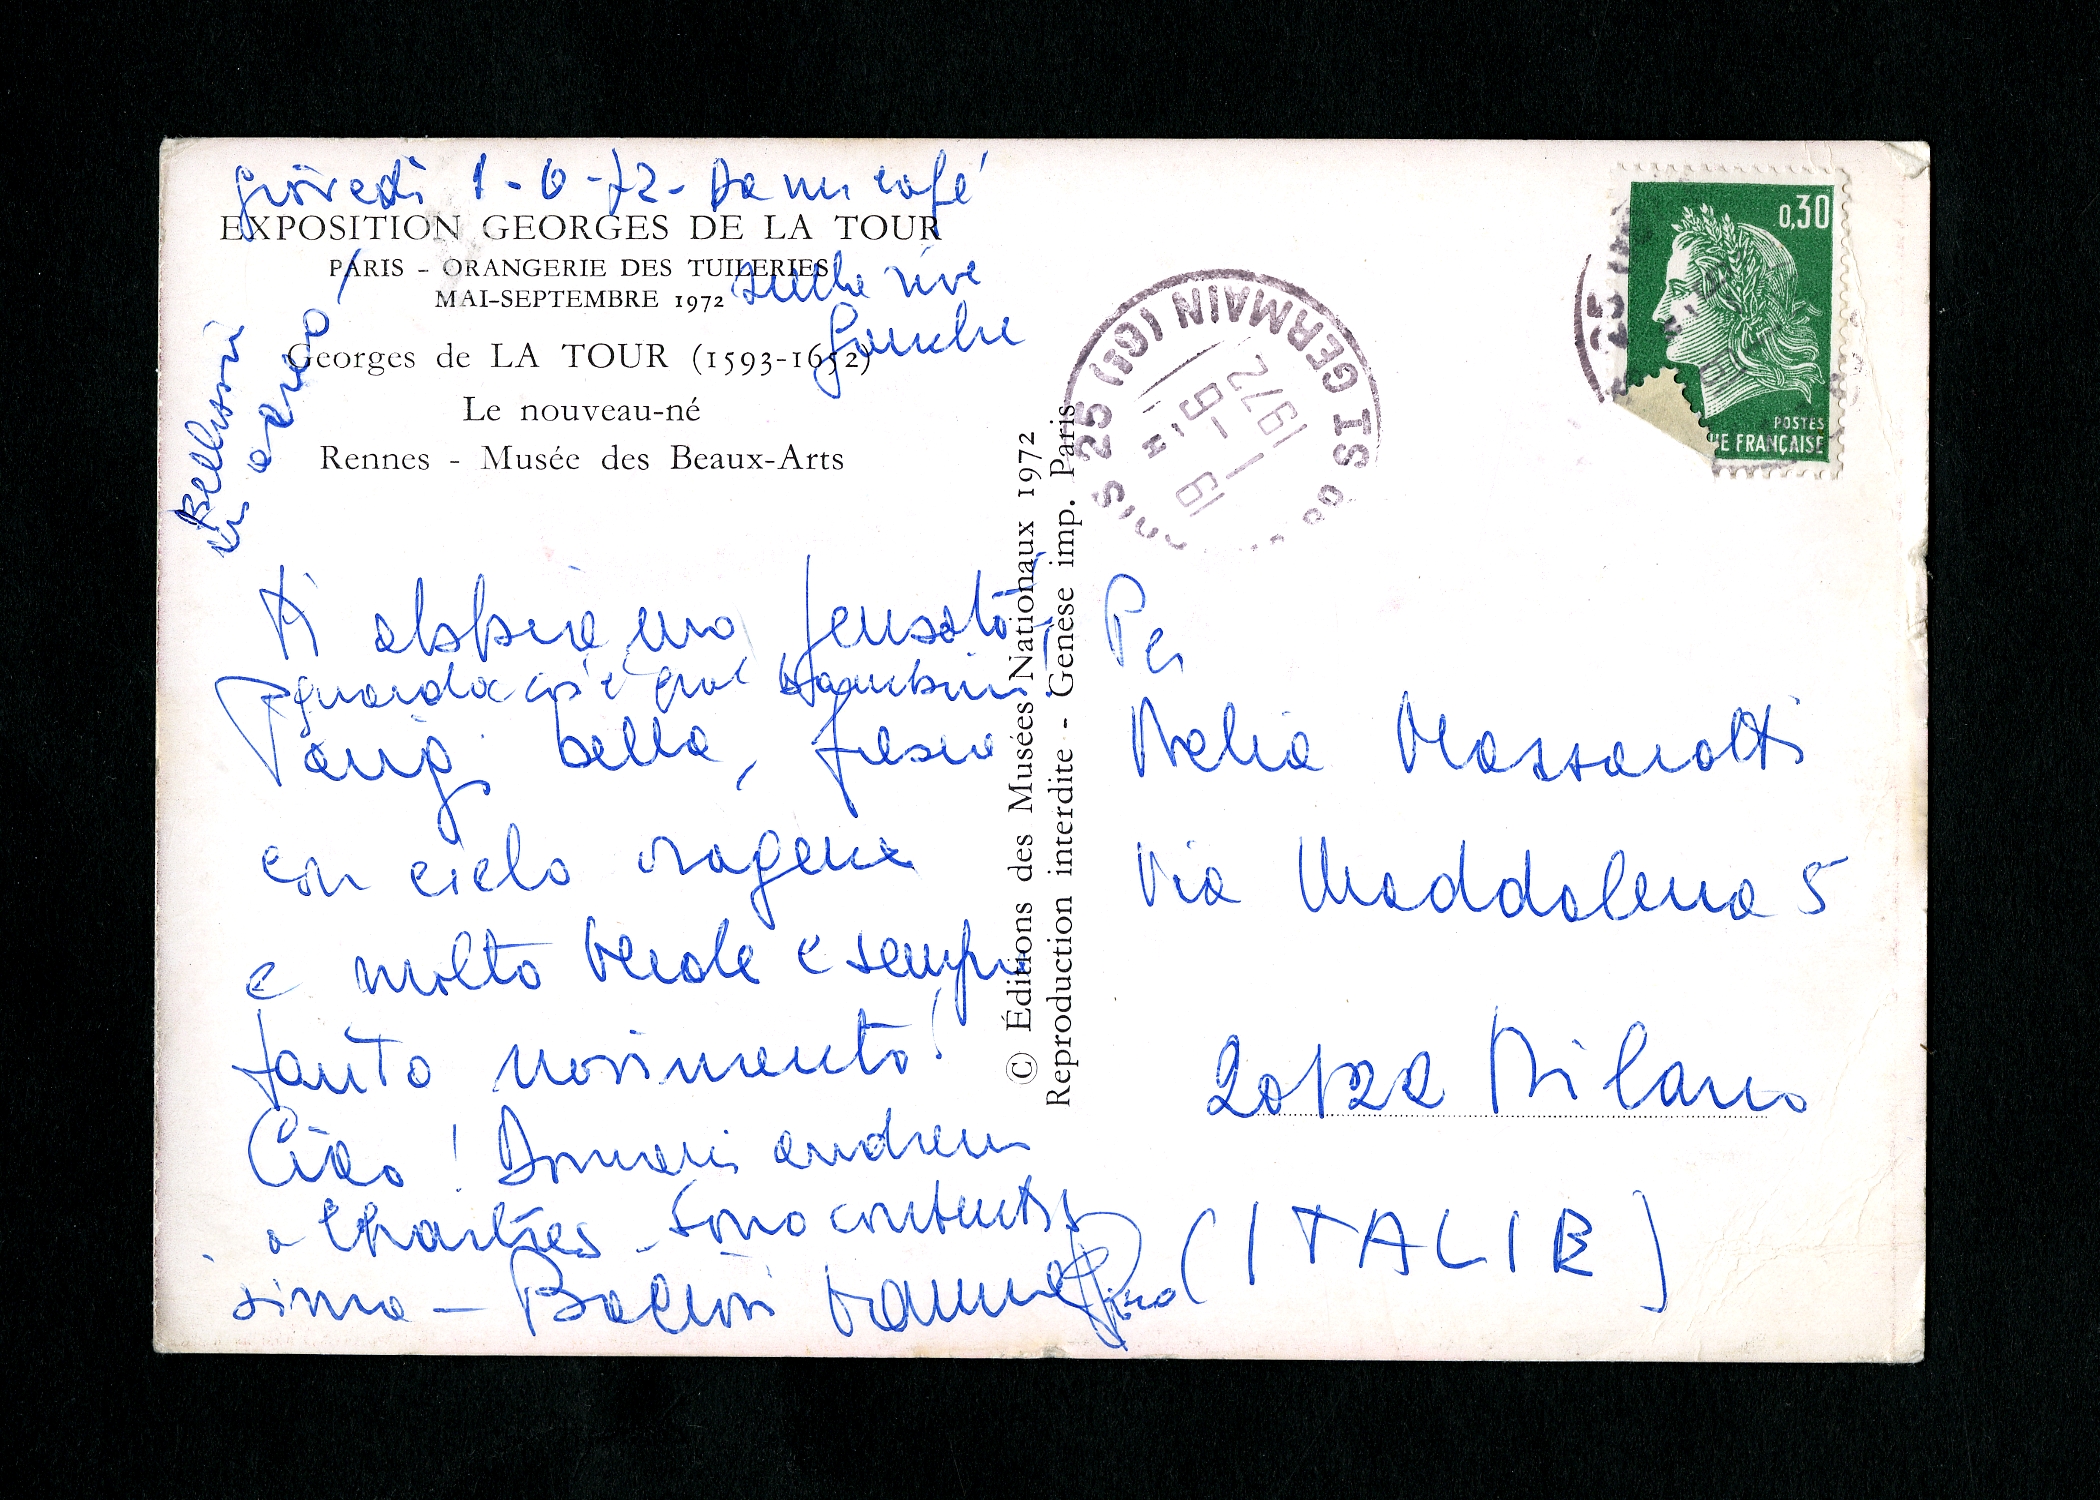 giovedì 1-6-72- Da un cafè
EXPOSITION GEORGES DE LA TOUR
PARIS - ORANGERIE DES TUILERIES
MAI-SEPTEMBRE 1972
sulla rive
Gauche
Georges de LA TOUR (1593-1652)
Le nouveau-né
Rennes - Musée des Beaux-Arts
Bellissimi
Ti abbiamo pensato!
guarda cos'è quel bambino!
Parigi bella, fresca
con cielo
e molto verde e sempre
tanto movimento!
Ciao! Domani andremo
a Chartres - Sono contentis
sima - Bacioni
© Éditions des Musées Nationaux 1972
Reproduction interdite - Genese imp. Paris
25 GERMAIN (6E)
19 H
1 - 6
1972
0,30
POSTES
UE FRANÇAISE
Per
Massarotti
Via Maddalena 5
20122 Milano
(ITALIE)